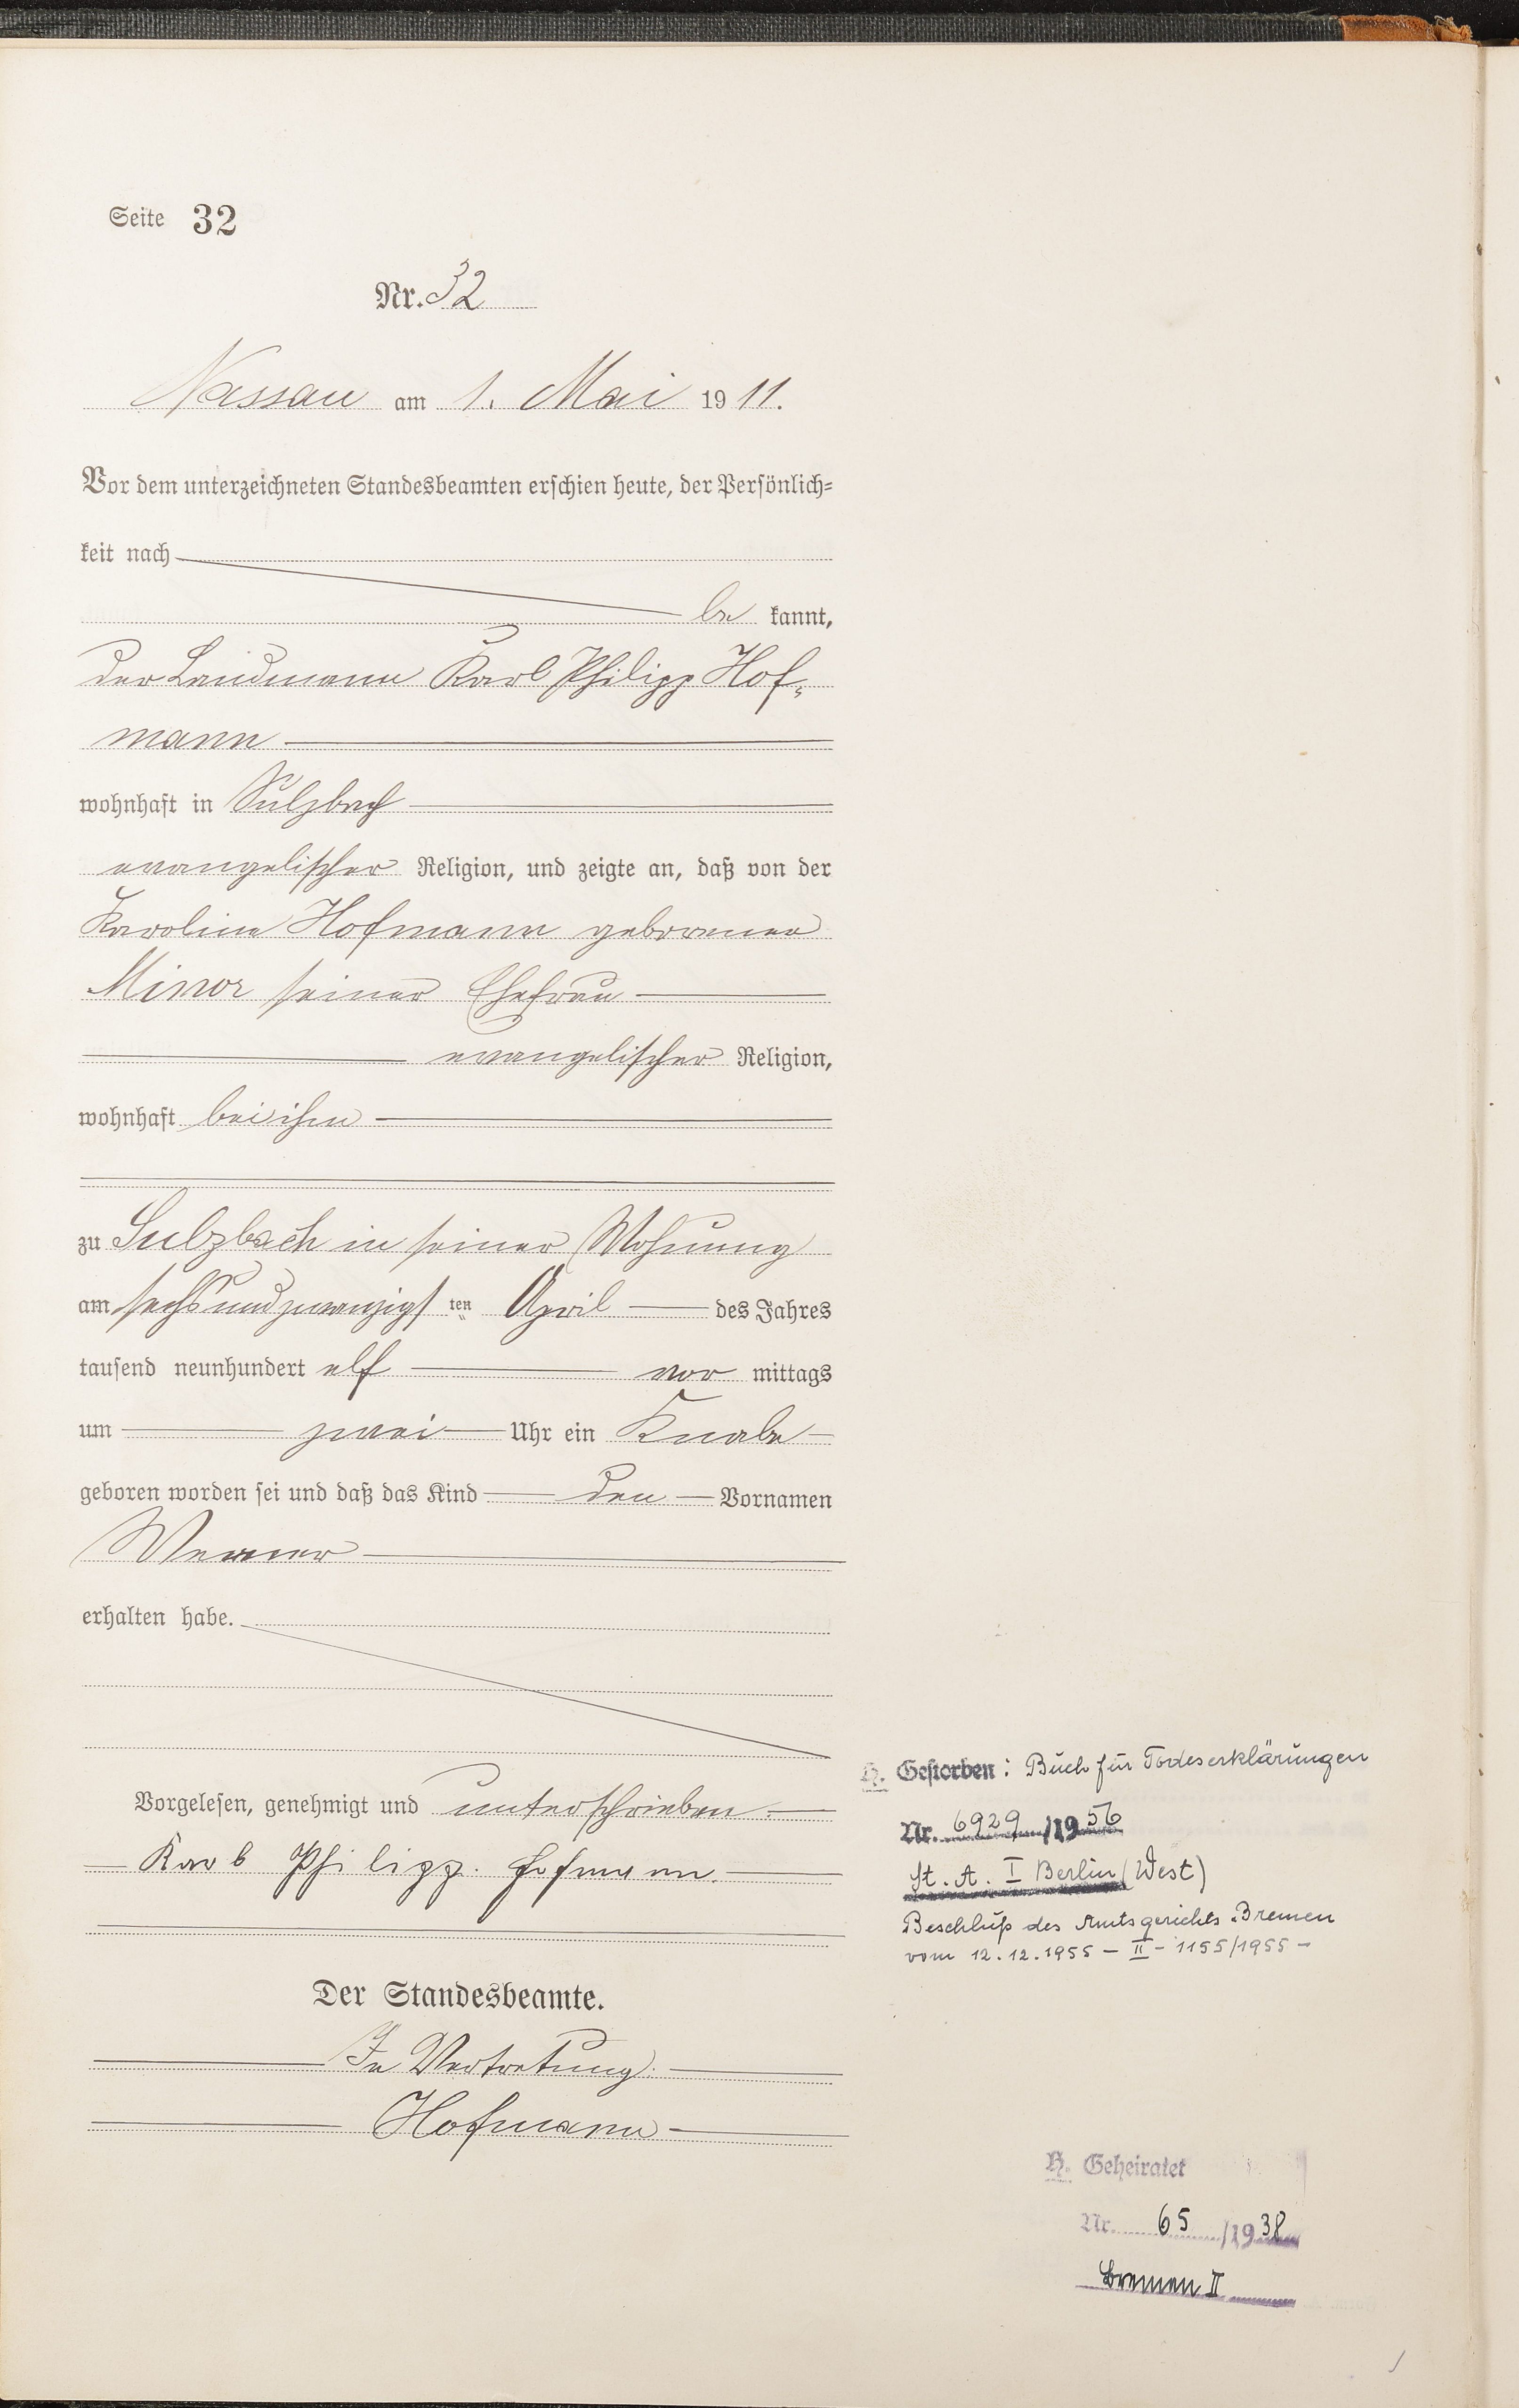 Seite 32
Nr. 32
Nassau am 1. Mai 1911.
Vor dem unterzeichneten Standesbeamten erschien heute, der Persönlich-
keit nach
be kannt,
der Landmann Karl Philipp Hof-
mann
wohnhaft in Sulzbach
evangelischer Religion, und zeigte an, daß von der
Karoline Hofmann geborenen
Minor seiner Ehefrau
evangelischer Religion,
wohnhaft bei ihm
zu Sulzbach in seiner Wohnung
am sechsundzwanzigsten April des Jahres
tausend neunhundert elf vor mittags
um zwei Uhr ein Knabe
geboren worden sei und daß das Kind den Vornamen
Werner
erhalten habe.
Vorgelesen, genehmigt und unterschrieben.
Karl Philipp Hofmann.
Der Standesbeamte.
In Vertretung.
Hofmann
H. Gestorben: Buch für Todeserklärungen
Nr. 6929/1956
St. A. I Berlin (West)
Beschluß des Amtsgerichts Bremen
vom 12.12.1955 – II – 1155/1955 –
H. Geheiratet
Nr. 65/1938
Bremen II